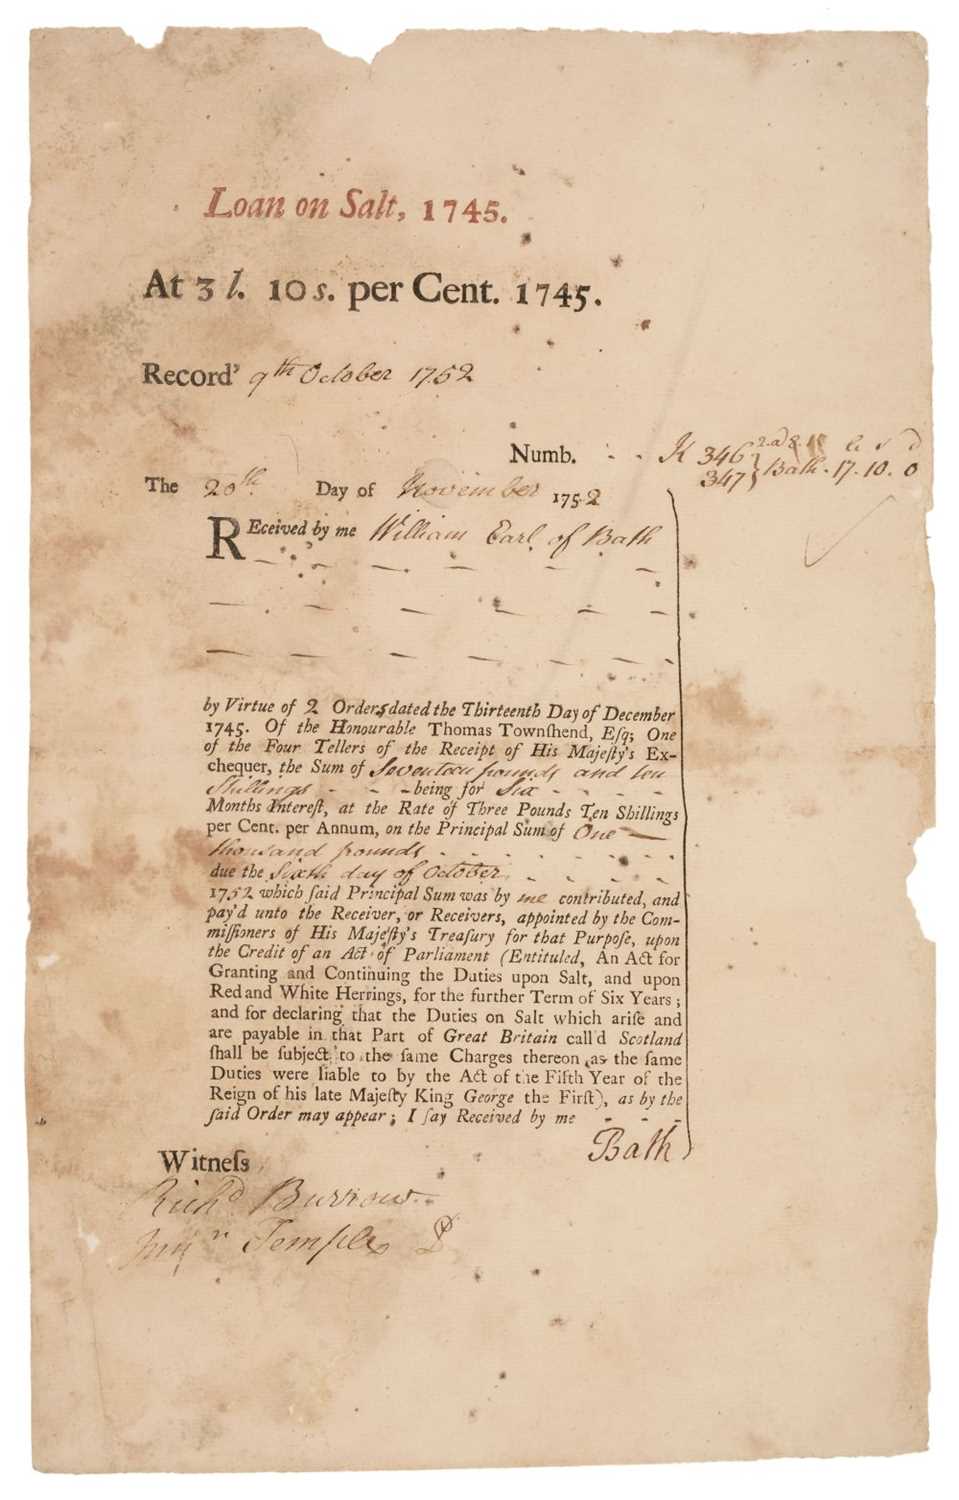 Loan on Salt, 1745.
At 3 l. 10 s. per Cent. 1745.
Record' 9th October 1752
Numb. - - K 346 347 } Bath - 17. 10. 0
The 20th. Day of November 1752
REceived by me William Earl of Bath
by Virtue of 2 Orders dated the Thirteenth Day of December
1745. Of the Honourable Thomas Townſhend, Eſq; One
of the Four Tellers of the Receipt of His Majeſty's Ex-
chequer, the Sum of Seventeen pounds and ten
Shillings - - - being for Six - - - -
Months Intereſt, at the Rate of Three Pounds Ten Shillings
per Cent. per Annum, on the Principal Sum of One —
thousand pounds - - - - - - -
due the Sixth day of October, - - - -
1752 which ſaid Principal Sum was by me contributed, and
pay'd unto the Receiver, or Receivers, appointed by the Com-
miſſioners of His Majeſty's Treaſury for that Purpoſe, upon
the Credit of an Act of Parliament (Entituled, An Act for
Granting and Continuing the Duties upon Salt, and upon
Red and White Herrings, for the further Term of Six Years;
and for declaring that the Duties on Salt which ariſe and
are payable in that Part of Great Britain call'd Scotland
ſhall be ſubject to the ſame Charges thereon as the ſame
Duties were liable to by the Act of the Fifth Year of the
Reign of his late Majeſty King George the Firſt), as by the
ſaid Order may appear; I ſay Received by me - - -
Bath
Witneſs
Richd Burrow
Temple